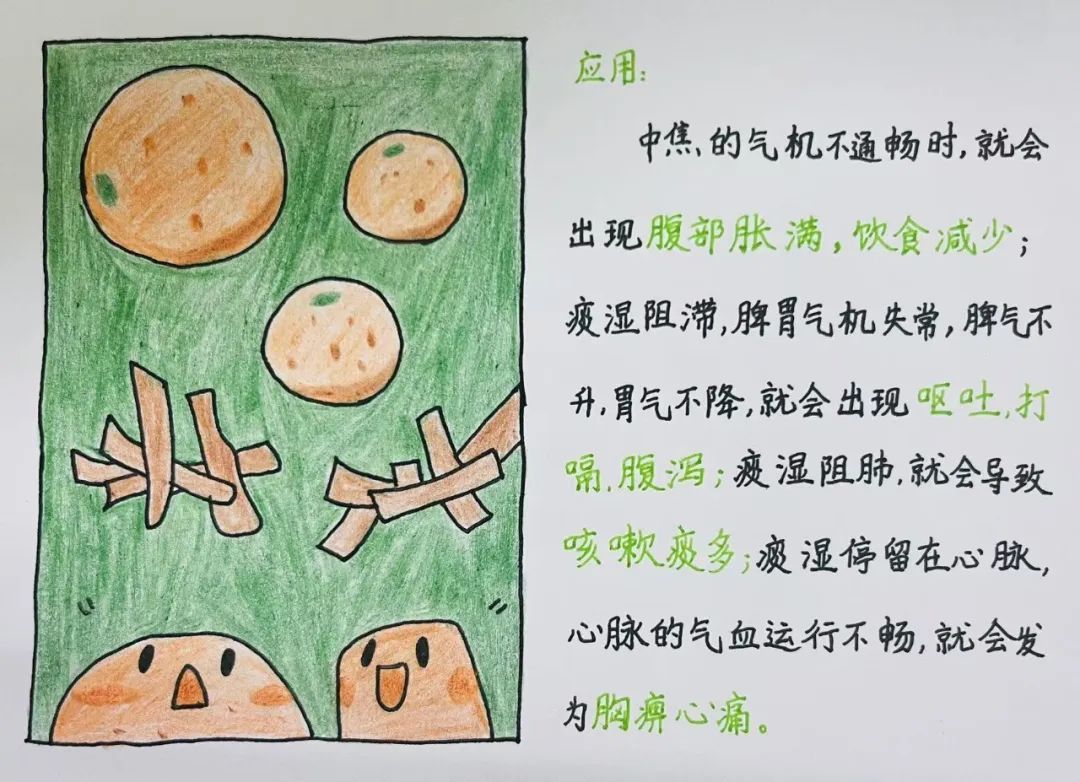 应用:
中焦的气机不通畅时,就会
出现腹部胀满,饮食减少;
痰湿阻滞,脾胃气机失常,脾气不
升,胃气不降,就会出现呕吐,打
嗝,腹泻;痰湿阻肺,就会导致
咳嗽痰多;痰湿停留在心脉,
心脉的气血运行不畅,就会发
为胸痹心痛。